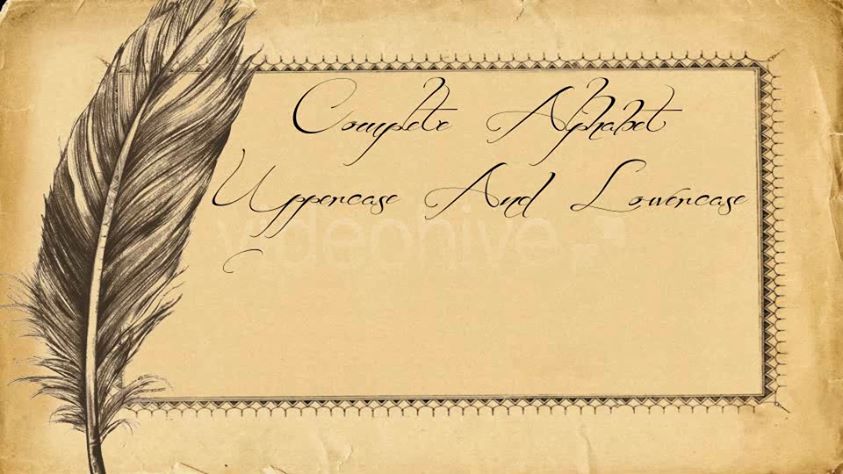 Complete Alphabet
Uppercase And Lowercase
videohive